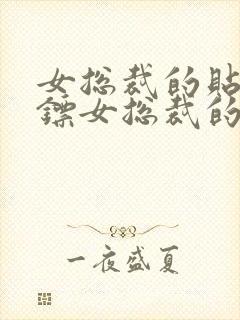 女总裁的贴
镖女总裁的
一夜盛夏